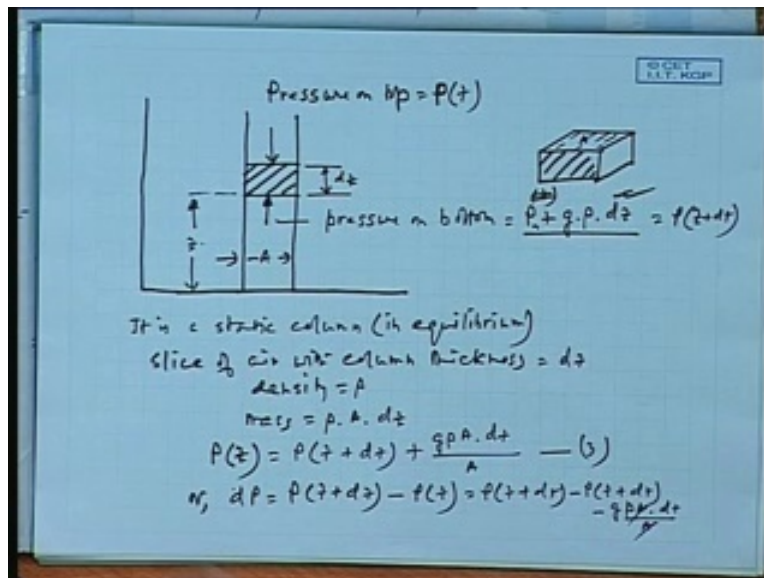 © CET
I.I.T. KGP
Pressure on top = P(z)
dz
pressure on bottom = P + g.ρ.dz = P(z+dz)
z
A
It is a static column (in equilibrium)
Slice of air with column thickness = dz
density = ρ
mass = ρ.A.dz
P(z) = P(z+dz) + gρA.dz/A — (3)
or, dP = P(z+dz) - P(z) = P(z+dz) - P(z+dz) - gρA.dz/A